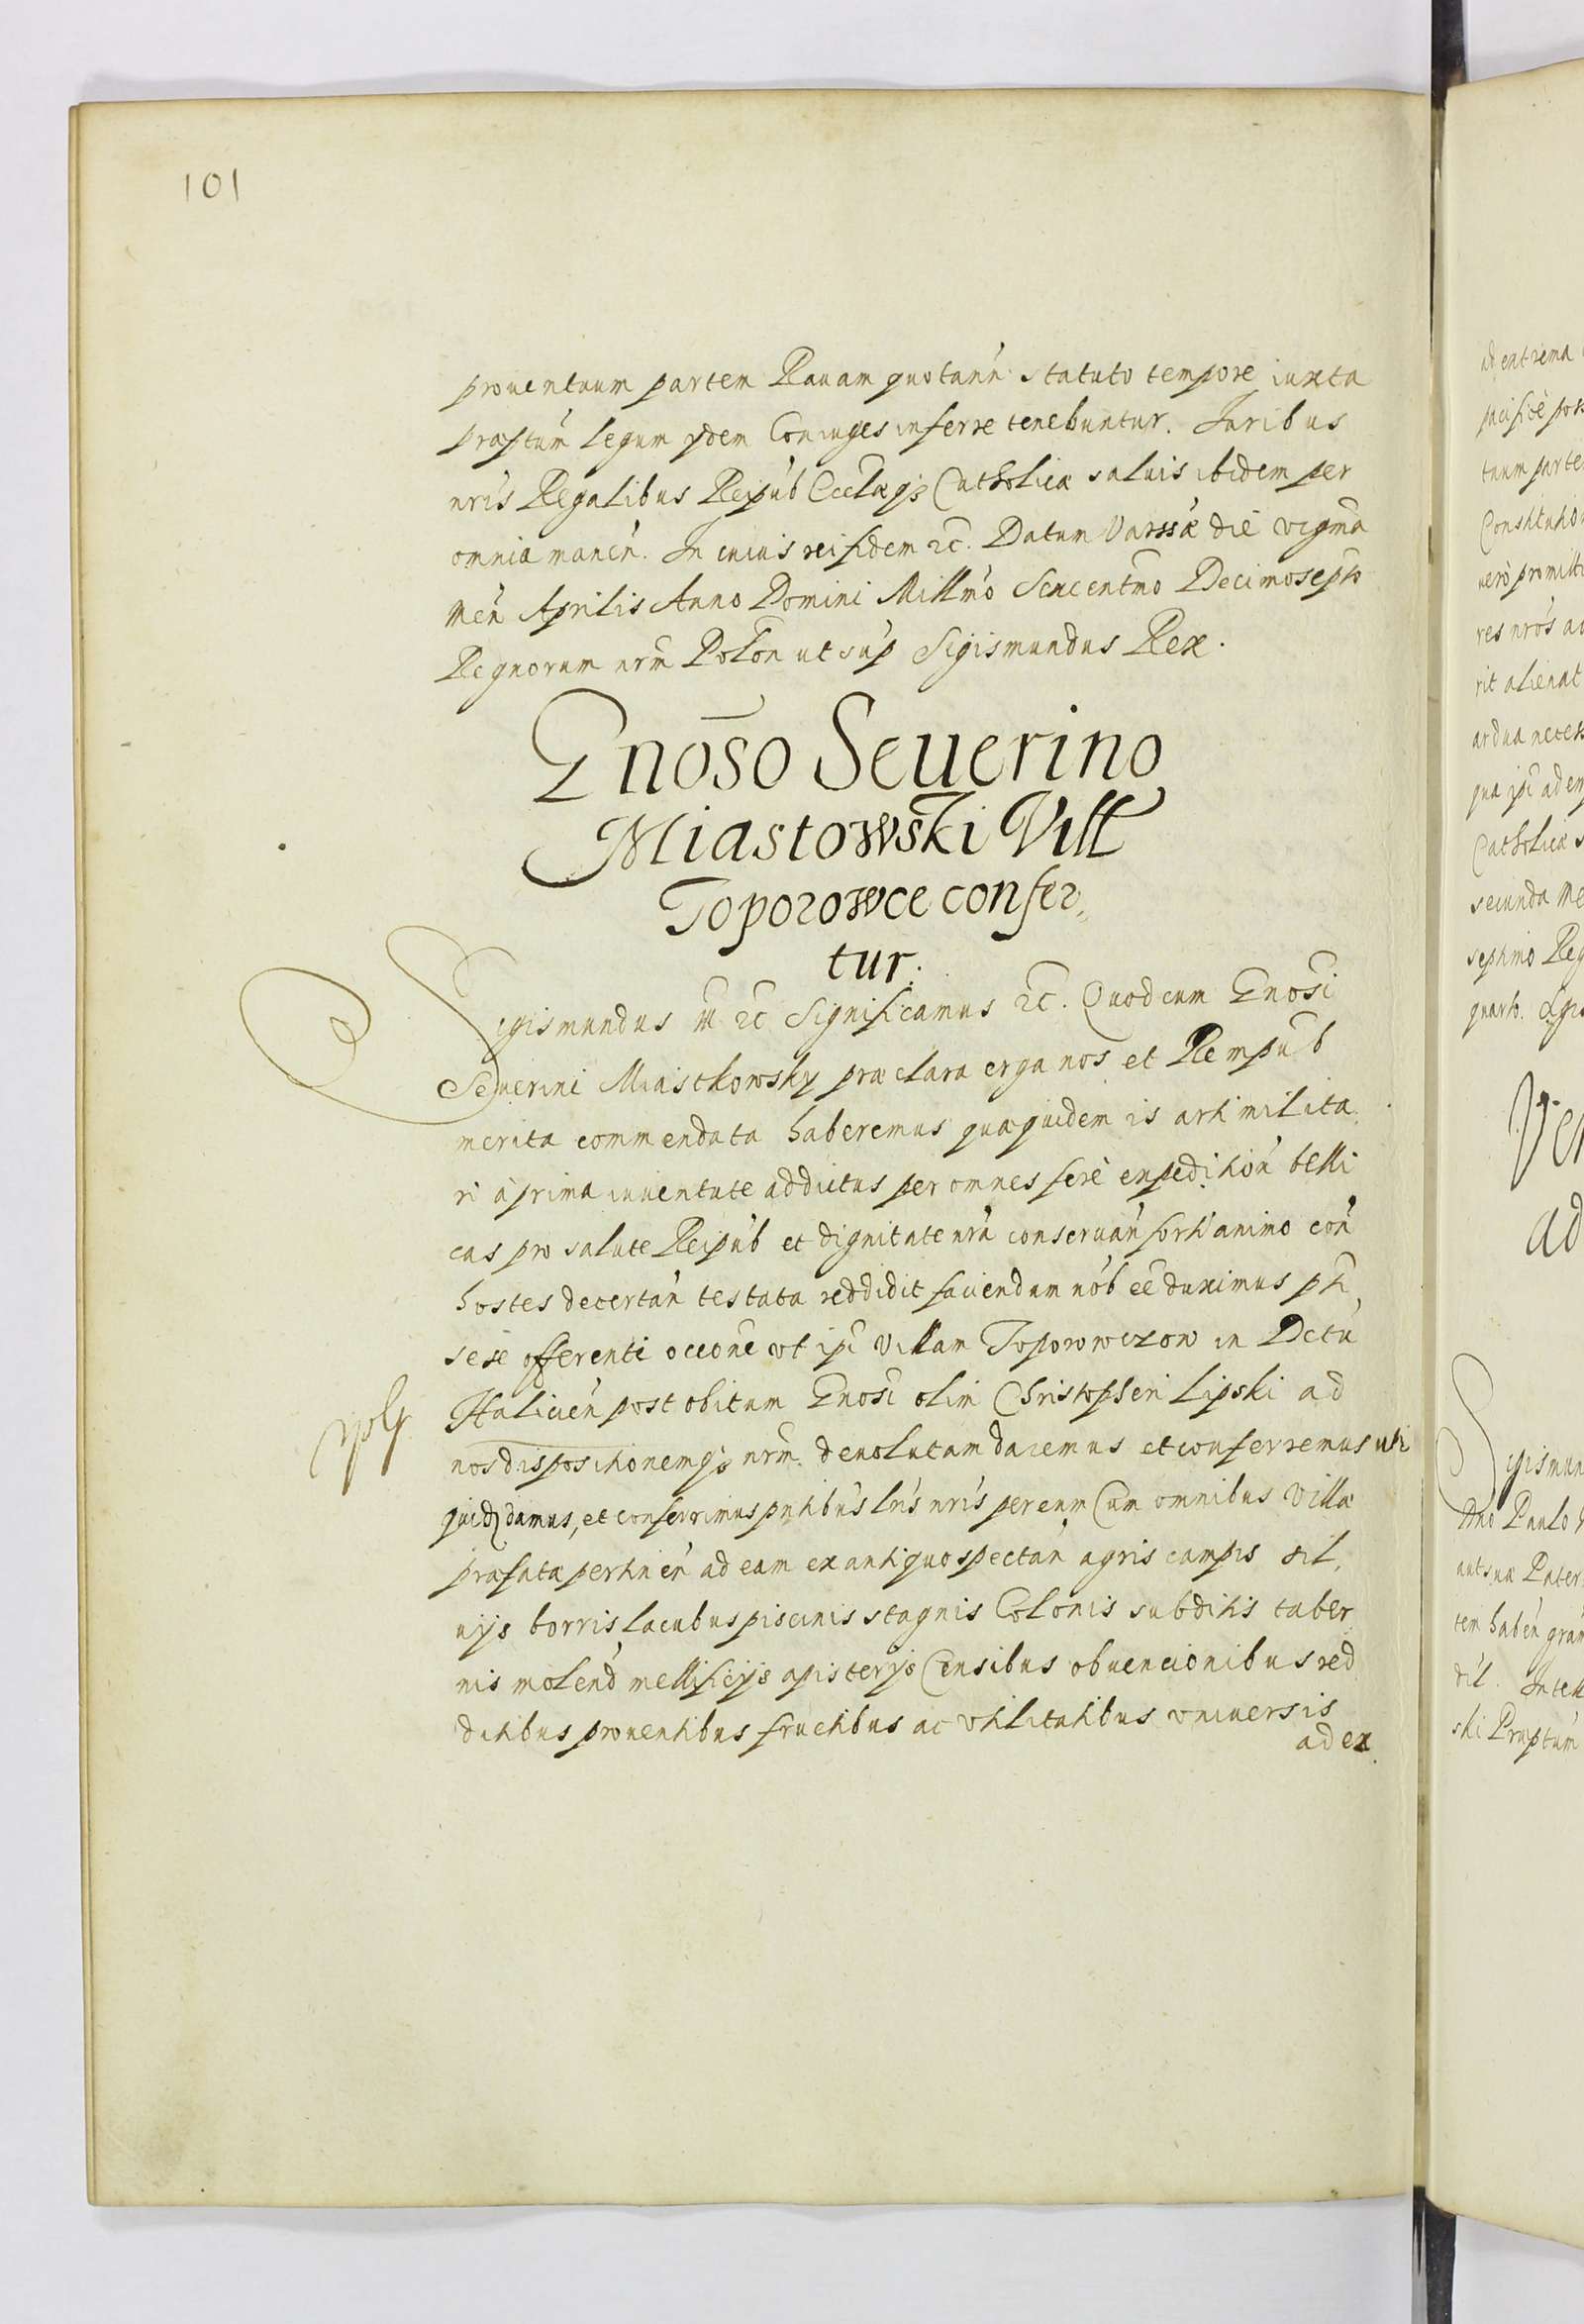 101
prouentuum partem Rauam quotañn statuto tempore iuxta
praeptum legum ijdem Coniuges inferre tenebuntur. Iuribus
nris Regalibus Reipub Ecclaeqz Catholicae saluis ibidem per
omnia manen. In cuius rei fidem zc. Datum Varssae die vigma
Men Aprilis Anno Domini Millmo Sexcentmo Decimosepto
Regnorum nrm Polon ut sup Sigismundus Rex.
Gnoso Seuerino
Miastowski Vill
Toporowce confer,
tur.
Sigismundus III zc Significamus zc. Quod cum Gnosi
Seuerini Miastkowsky praeclara erga nos et Rempub
merita commendata haberemus quae quidem is arti milita
ri à prima iuuentute addictus per omnes ferè expedition belli
cas pro salute Reipub et dignitate nra conseruan forti animo con
hostes decertan testata reddidit faciendum nob ee duximus pti
sese offerenti occone vt ipi Villam Toporowczow in Dctu
Halicien post obitum Gnosi olim Christopheri Lipski ad
nos dispositionemqz nrm. deuolutam daremus et conferremus uti
quidq damus, et conferrimus pntibus lris nris per eum Cum omnibus Villae
praefatae pertinen ad eam ex antiquo spectan agris campis sil,
uijs borris lacubus piscinis stagnis Colonis subditis taber
nis molend mellificijs apisterijs Censibus obuencionibus red
ditibus prouentibus fructibus ac vtilitatibus vniuersis
ad ex
ad extrema
pacificè poss
tuum parte
Constitutio
verò promitti
res nros ac
rit alienat
ardua necess
qua ipi adem
Catholicae s
secunda Me
septimo Reg
quarto. Sigis
Ver
ad
Sigismun
Dno Paulo
aut suae Pater
tem haben gram
dil. Intell
ski Praeptum